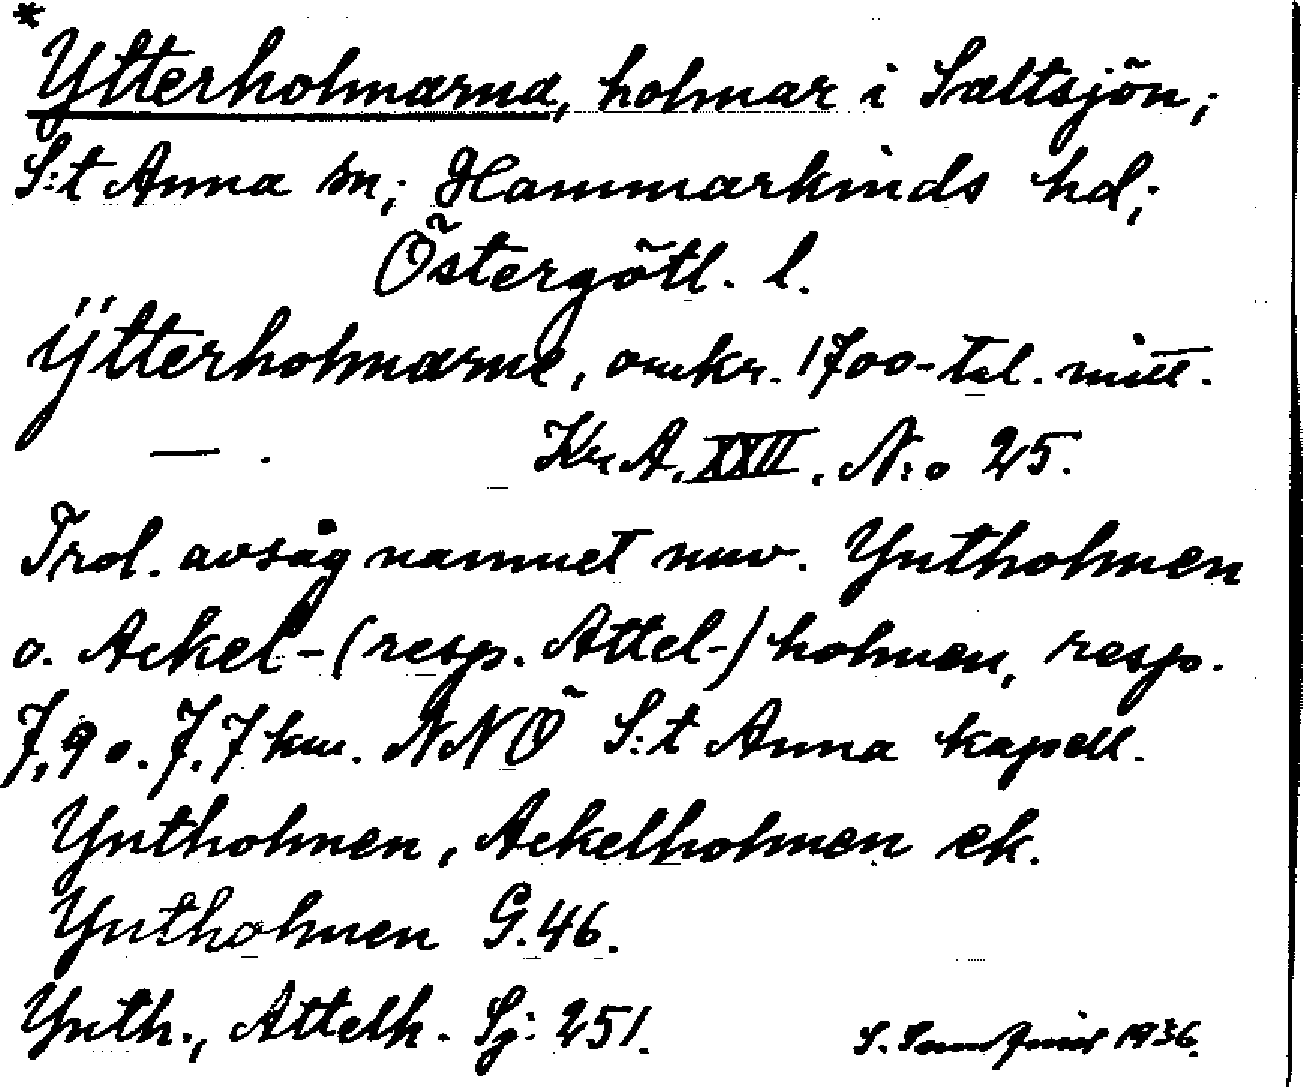 *Ytterholmarna, holmar i Saltsjön;
S:t Anna sn; Hammarkinds hd;
Östergötl. l.
Ÿtterholmarne, omkr. 1700-tal. mitt.
— . Kr. A. XXII. N:o 25.
Trol. avsåg namnet nuv. Yntholmen
o. Ackel-(resp. Attel-)holmen, resp.
7,9 o. 7,7 km. NNÖ S:t Anna kapell.
Yntholmen, Ackelholmen ek.
Yntholmen G.46.
Ynth., Attelh. Sj: 251.
S. 1936.